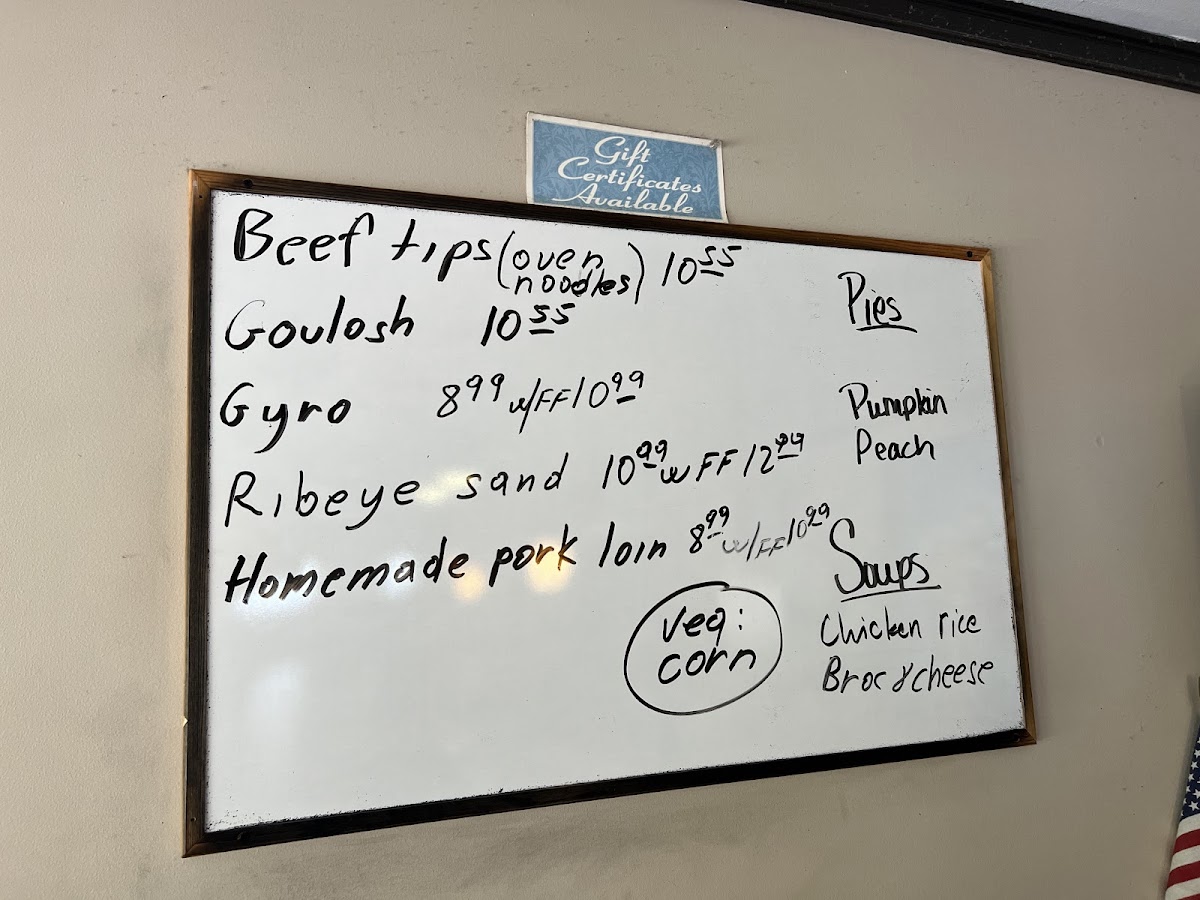 Gift
Certificates
Available
Beef tips (oven noodles) 10 55
Goulosh 10 55
Gyro 8 99 w/FF 10 99
Ribeye sand 10 99 w FF 12 99
Homemade pork loin 8 99 w/FF 10 99
veg:
corn
Pies
Pumpkin
Peach
Soups
Chicken rice
Broc & cheese